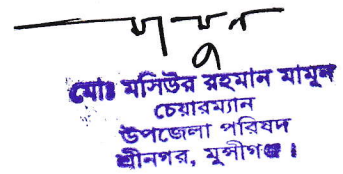 মামুন
মোঃ মসিউর রহমান মামুন
চেয়ারম্যান
উপজেলা পরিষদ
শ্রীনগর, মুন্সীগঞ্জ।